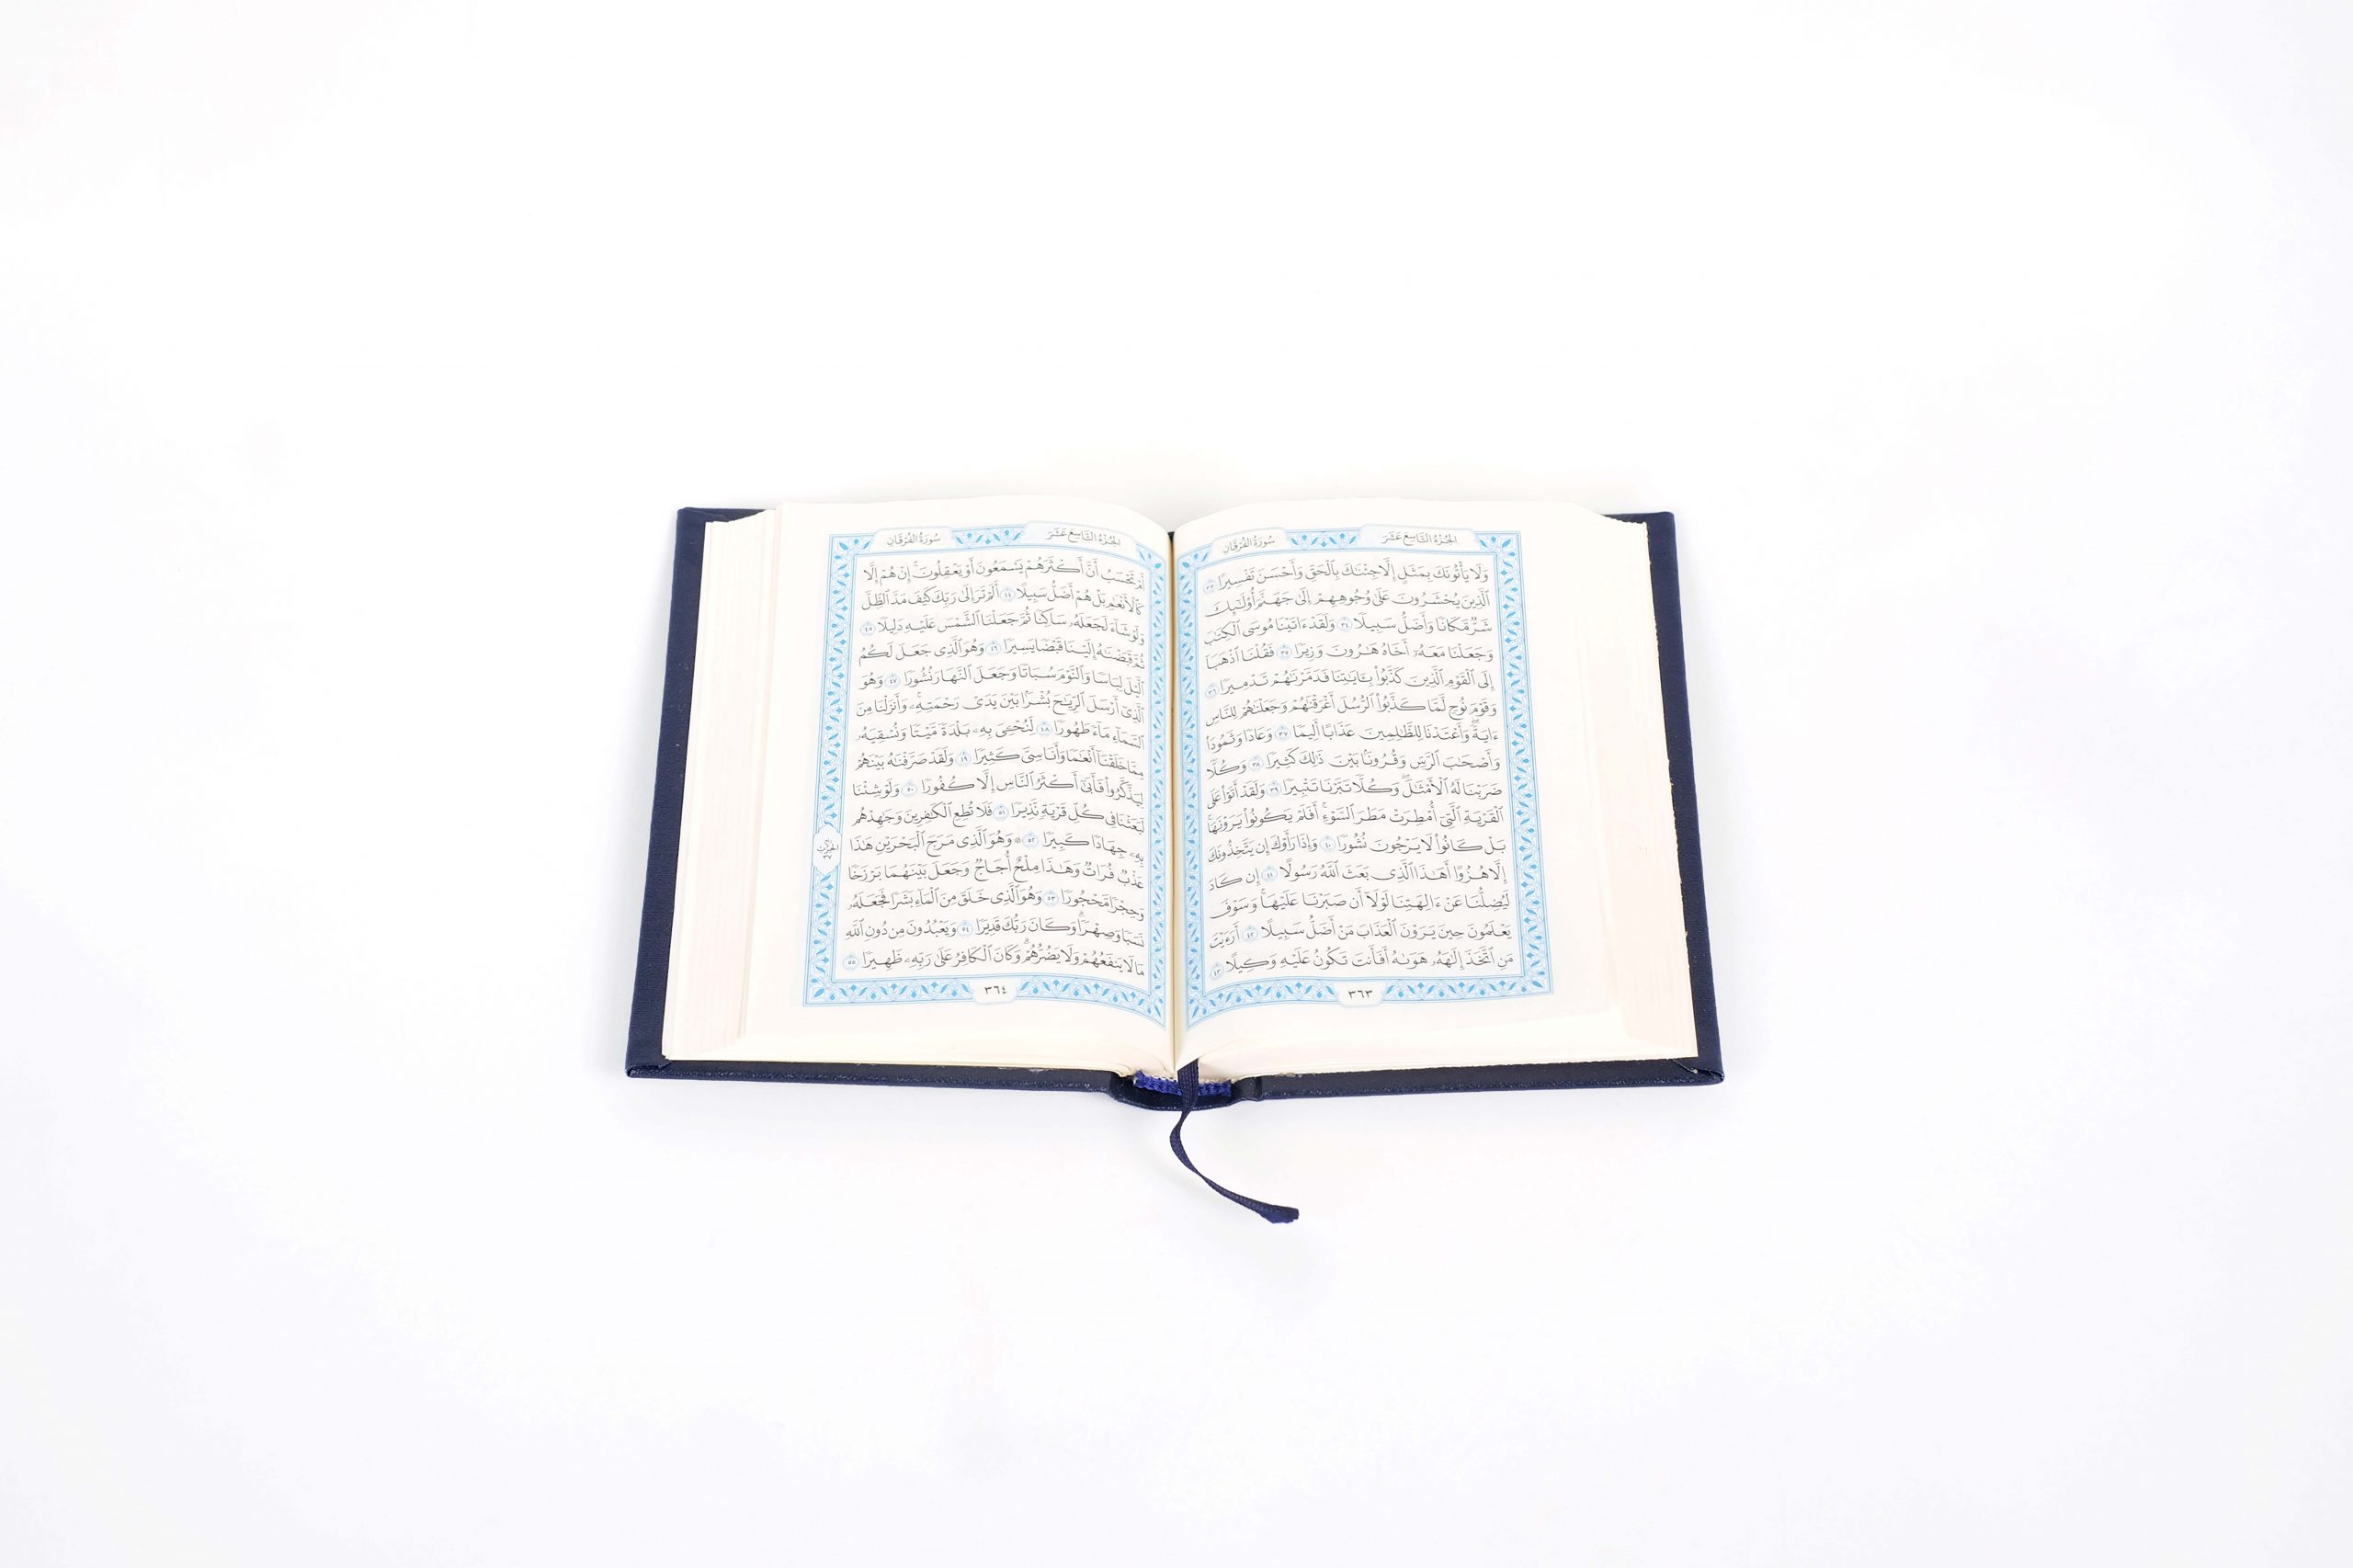 الجُزْءُ التَّاسِعَ عَشَرَ
سُورَةُ الفُرْقَانِ
وَلَا يَأْتُونَكَ بِمَثَلٍ إِلَّا جِئْنَٰكَ بِٱلْحَقِّ وَأَحْسَنَ تَفْسِيرًا ٣٣
ٱلَّذِينَ يُحْشَرُونَ عَلَىٰ وُجُوهِهِمْ إِلَىٰ جَهَنَّمَ أُو۟لَٰٓئِكَ
شَرٌّ مَّكَانًا وَأَضَلُّ سَبِيلًا ٣٤ وَلَقَدْ ءَاتَيْنَا مُوسَى ٱلْكِتَٰبَ
وَجَعَلْنَا مَعَهُۥٓ أَخَاهُ هَٰرُونَ وَزِيرًا ٣٥ فَقُلْنَا ٱذْهَبَآ
إِلَى ٱلْقَوْمِ ٱلَّذِينَ كَذَّبُوا۟ بِـَٔايَٰتِنَا فَدَمَّرْنَٰهُمْ تَدْمِيرًا ٣٦
وَقَوْمَ نُوحٍ لَّمَّا كَذَّبُوا۟ ٱلرُّسُلَ أَغْرَقْنَٰهُمْ وَجَعَلْنَٰهُمْ لِلنَّاسِ
ءَايَةً ۖ وَأَعْتَدْنَا لِلظَّٰلِمِينَ عَذَابًا أَلِيمًا ٣٧ وَعَادًا وَثَمُودَا۟
وَأَصْحَٰبَ ٱلرَّسِّ وَقُرُونًۢا بَيْنَ ذَٰلِكَ كَثِيرًا ٣٨ وَكُلًّا
ضَرَبْنَا لَهُ ٱلْأَمْثَٰلَ ۖ وَكُلًّا تَبَّرْنَا تَتْبِيرًا ٣٩ وَلَقَدْ أَتَوْا۟ عَلَى
ٱلْقَرْيَةِ ٱلَّتِىٓ أُمْطِرَتْ مَطَرَ ٱلسَّوْءِ ۚ أَفَلَمْ يَكُونُوا۟ يَرَوْنَهَا ۚ
بَلْ كَانُوا۟ لَا يَرْجُونَ نُشُورًا ٤٠ وَإِذَا رَأَوْكَ إِن يَتَّخِذُونَكَ
إِلَّا هُزُوًا أَهَٰذَا ٱلَّذِى بَعَثَ ٱللَّهُ رَسُولًا ٤١ إِن كَادَ
لَيُضِلُّنَا عَنْ ءَالِهَتِنَا لَوْلَآ أَن صَبَرْنَا عَلَيْهَا ۚ وَسَوْفَ
يَعْلَمُونَ حِينَ يَرَوْنَ ٱلْعَذَابَ مَنْ أَضَلُّ سَبِيلًا ٤٢ أَرَءَيْتَ
مَنِ ٱتَّخَذَ إِلَٰهَهُۥ هَوَىٰهُ أَفَأَنتَ تَكُونُ عَلَيْهِ وَكِيلًا ٤٣
٣٦٣
الجُزْءُ التَّاسِعَ عَشَرَ
سُورَةُ الفُرْقَانِ
أَمْ تَحْسَبُ أَنَّ أَكْثَرَهُمْ يَسْمَعُونَ أَوْ يَعْقِلُونَ ۚ إِنْ هُمْ إِلَّا
كَٱلْأَنْعَٰمِ ۖ بَلْ هُمْ أَضَلُّ سَبِيلًا ٤٤ أَلَمْ تَرَ إِلَىٰ رَبِّكَ كَيْفَ مَدَّ ٱلظِّلَّ
وَلَوْ شَآءَ لَجَعَلَهُۥ سَاكِنًا ثُمَّ جَعَلْنَا ٱلشَّمْسَ عَلَيْهِ دَلِيلًا ٤٥
ثُمَّ قَبَضْنَٰهُ إِلَيْنَا قَبْضًا يَسِيرًا ٤٦ وَهُوَ ٱلَّذِى جَعَلَ لَكُمُ
ٱلَّيْلَ لِبَاسًا وَٱلنَّوْمَ سُبَاتًا وَجَعَلَ ٱلنَّهَارَ نُشُورًا ٤٧ وَهُوَ
ٱلَّذِىٓ أَرْسَلَ ٱلرِّيَٰحَ بُشْرًۢا بَيْنَ يَدَىْ رَحْمَتِهِۦ ۚ وَأَنزَلْنَا مِنَ
ٱلسَّمَآءِ مَآءً طَهُورًا ٤٨ لِّنُحْـِۧىَ بِهِۦ بَلْدَةً مَّيْتًا وَنُسْقِيَهُۥ
مِمَّا خَلَقْنَآ أَنْعَٰمًا وَأَنَاسِىَّ كَثِيرًا ٤٩ وَلَقَدْ صَرَّفْنَٰهُ بَيْنَهُمْ
لِيَذَّكَّرُوا۟ فَأَبَىٰٓ أَكْثَرُ ٱلنَّاسِ إِلَّا كُفُورًا ٥٠ وَلَوْ شِئْنَا
لَبَعَثْنَا فِى كُلِّ قَرْيَةٍ نَّذِيرًا ٥١ فَلَا تُطِعِ ٱلْكَٰفِرِينَ وَجَٰهِدْهُم
بِهِۦ جِهَادًا كَبِيرًا ٥٢ ۞ وَهُوَ ٱلَّذِى مَرَجَ ٱلْبَحْرَيْنِ هَٰذَا
عَذْبٌ فُرَاتٌ وَهَٰذَا مِلْحٌ أُجَاجٌ وَجَعَلَ بَيْنَهُمَا بَرْزَخًا
وَحِجْرًا مَّحْجُورًا ٥٣ وَهُوَ ٱلَّذِى خَلَقَ مِنَ ٱلْمَآءِ بَشَرًا فَجَعَلَهُۥ
نَسَبًا وَصِهْرًا ۗ وَكَانَ رَبُّكَ قَدِيرًا ٥٤ وَيَعْبُدُونَ مِن دُونِ ٱللَّهِ
مَا لَا يَنفَعُهُمْ وَلَا يَضُرُّهُمْ ۗ وَكَانَ ٱلْكَافِرُ عَلَىٰ رَبِّهِۦ ظَهِيرًا ٥٥
الحِزْبُ
٣٧
٣٦٤